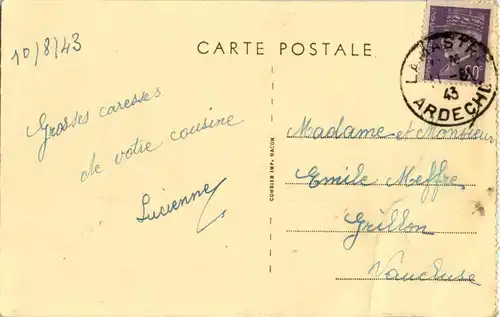 10/8/43
CARTE POSTALE
LAMASTRE
43
ARDECHE
Grosses caresses
de votre cousine
Lucienne
COMBIER IMP. MACON
Madame et Monsieur
Emile Meffre
Grillon
Vaucluse